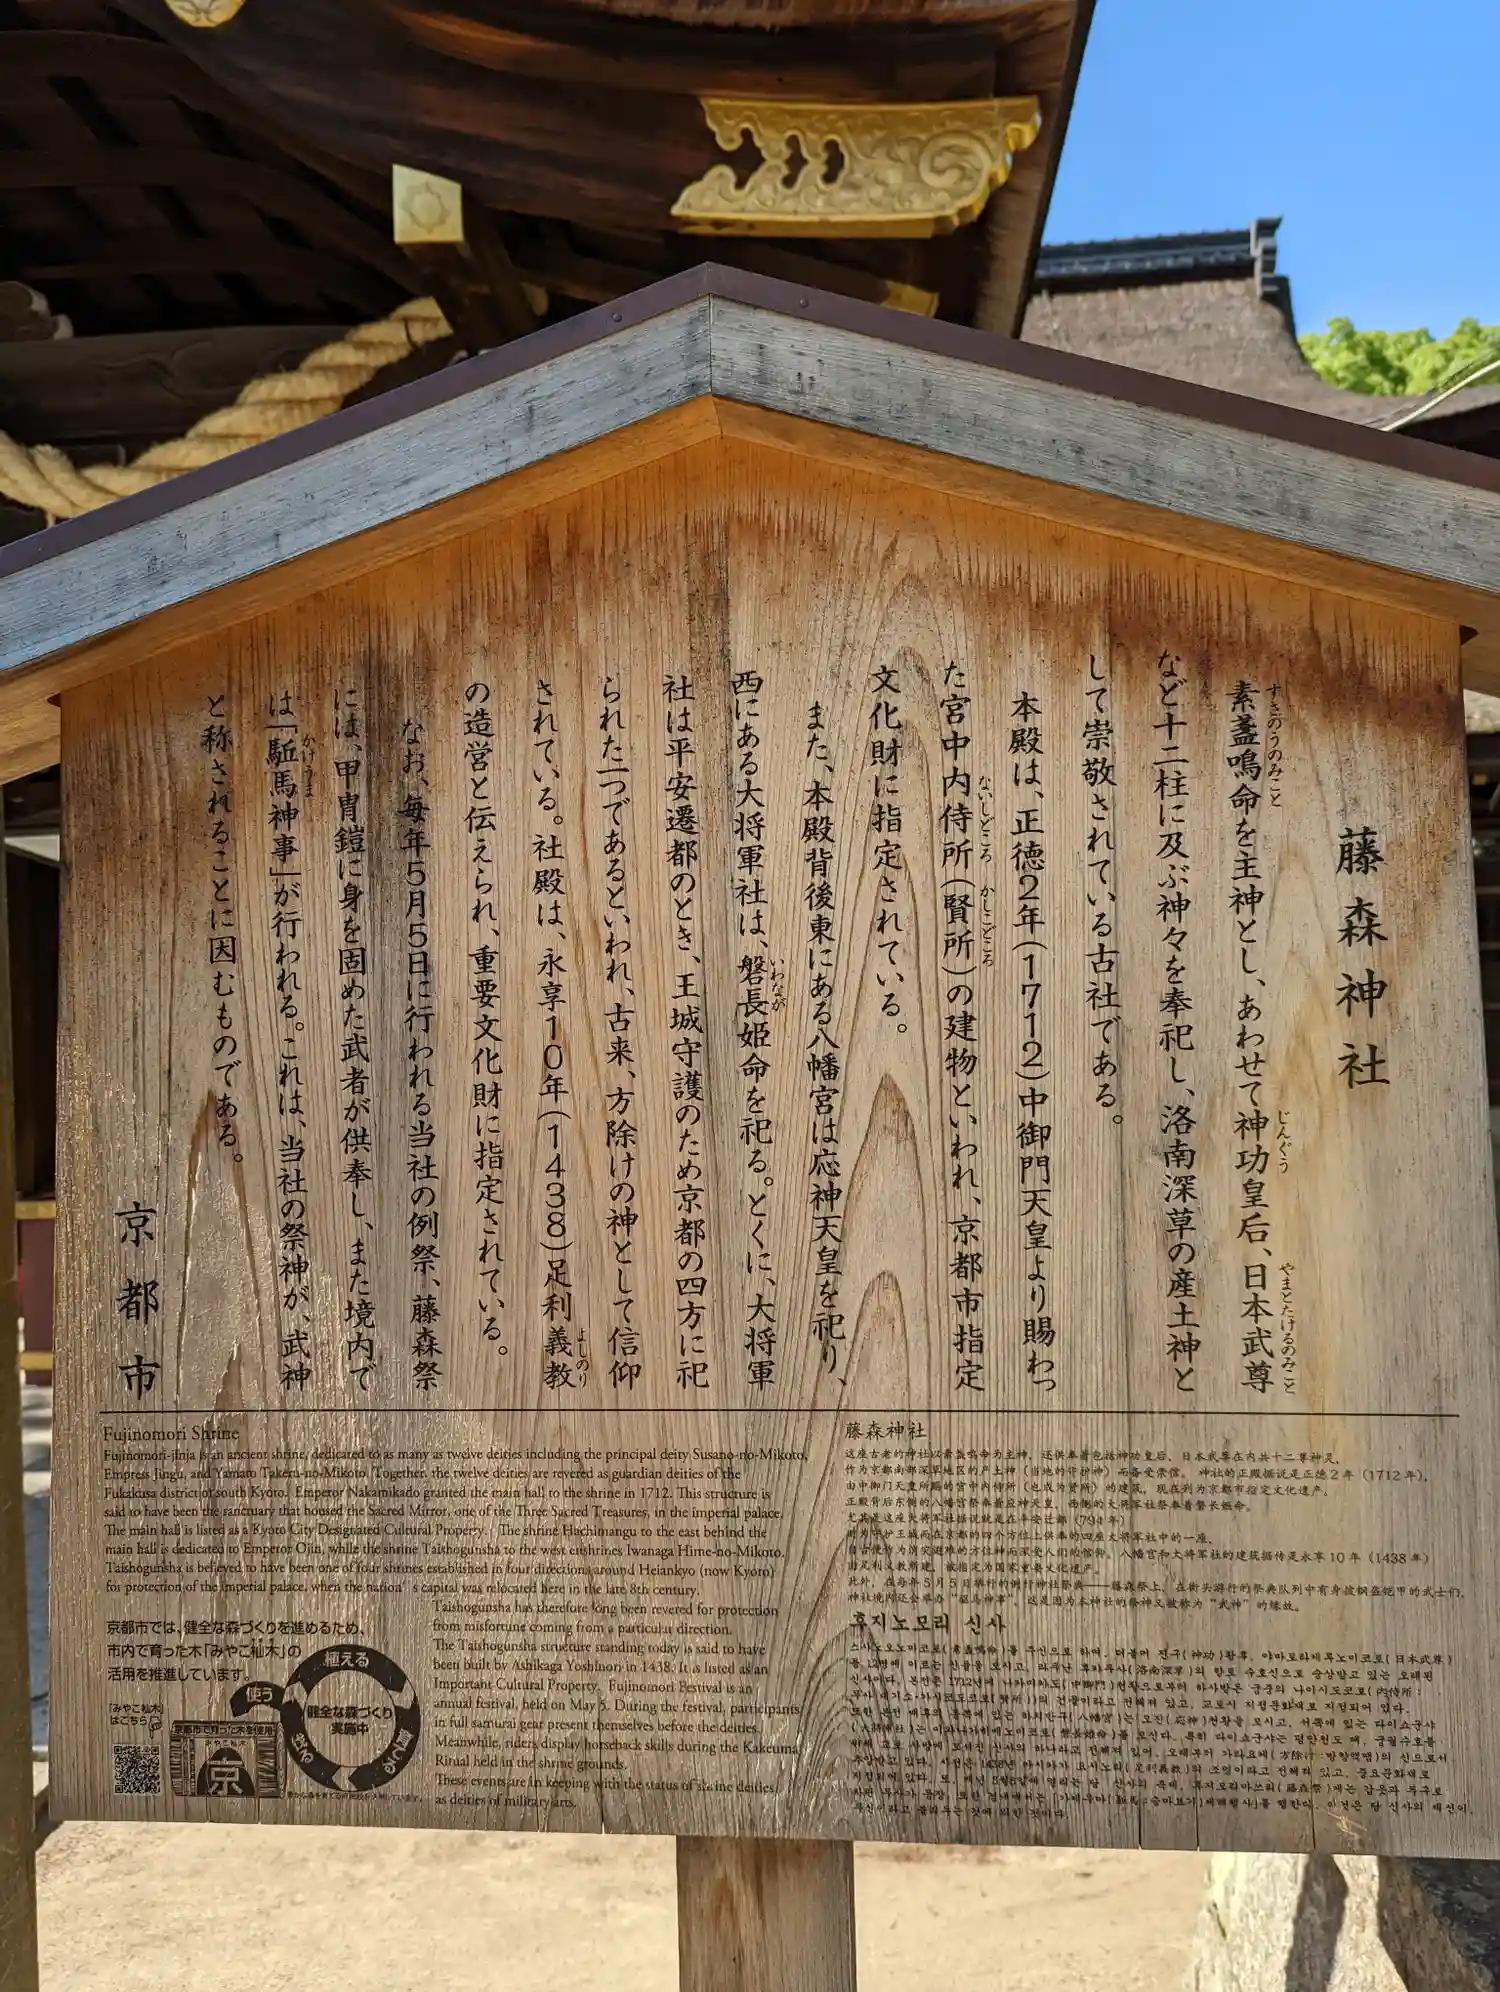 藤森神社
素盞鳴命を主神とし、あわせて神功皇后、日本武尊
すさのうのみこと
じんぐう
やまとたけるのみこと
など十二柱に及ぶ神々を奉祀し、洛南深草の産土神と
して崇敬されている古社である。
本殿は、正徳2年(1712)中御門天皇より賜わっ
た宮中内侍所(賢所)の建物といわれ、京都市指定
ないしどころ
かしこどころ
文化財に指定されている。
また、本殿背後東にある八幡宮は応神天皇を祀り、
西にある大将軍社は、磐長姫命を祀る。とくに、大将軍
いわなが
社は平安遷都のとき、王城守護のため京都の四方に祀
られた一つであるといわれ、古来、方除けの神として信仰
されている。社殿は、永享10年(1438)足利義教
よしのり
の造営と伝えられ、重要文化財に指定されている。
なお、毎年5月5日に行われる当社の例祭、藤森祭
には、甲冑鎧に身を固めた武者が供奉し、また境内で
は「駈馬神事」が行われる。これは、当社の祭神が、武神
かけうま
と称されることに因むものである。
京都市
Fujinomori Shrine
Fujinomori-jinja is an ancient shrine, dedicated to as many as twelve deities including the principal deity Susano-no-Mikoto,
Empress Jingu, and Yamato Takeru-no-Mikoto. Together, the twelve deities are revered as guardian deities of the
Fukakusa district of south Kyoto. Emperor Nakamikado granted the main hall to the shrine in 1712. This structure is
said to have been the sanctuary that housed the Sacred Mirror, one of the Three Sacred Treasures, in the imperial palace.
The main hall is listed as a Kyoto City Designated Cultural Property. The shrine Hachimangu to the east behind the
main hall is dedicated to Emperor Ojin, while the shrine Taishogunsha to the west enshrines Iwanaga Hime-no-Mikoto.
Taishogunsha is believed to have been one of four shrines established in four directions around Heiankyo (now Kyoto)
for protection of the imperial palace, when the nation's capital was relocated here in the late 8th century.
Taishogunsha has therefore long been revered for protection
from misfortune coming from a particular direction.
The Taishogunsha structure standing today is said to have
been built by Ashikaga Yoshinori in 1438. It is listed as an
Important Cultural Property. Fujinomori Festival is an
annual festival, held on May 5. During the festival, participants
in full samurai gear present themselves before the deities.
Meanwhile, riders display horseback skills during the Kakeuma
Ritual held in the shrine grounds.
These events are in keeping with the status of shrine deities
as deities of military arts.
京都市では、健全な森づくりを進めるため、
市内で育った木「みやこ杣木」の
活用を推進しています。
「みやこ杣木」
はこちら
極える
使う
健全な森づくり
実施中
京都市で育った木を使用
みやこ杣木
京
藤森神社
这座古老的神社以素盏鸣命为主神，还供奉着包括神功皇后、日本武尊在内共十二尊神灵，
作为京都南部深草地区的产土神（当地的守护神）而备受崇信。神社的正殿据说是正德2年（1712年），
由中御门天皇所赐的宫中内侍所（也成为贤所）的建筑，现在列为京都市指定文化遗产。
正殿背后东侧的八幡宫祭奉着应神天皇，西侧的大将军社祭奉着磐长姬命。
尤其是这座大将军社据说就是在平安迁都（794年）
时为守护王城而在京都的四个方位上供奉的四座大将军社中的一座，
自古便作为消灾避难的方位神而深受人们的信仰。八幡宫和大将军社的建筑据传是永享10年（1438年）
由足利义教所建，被指定为国家重要文化遗产。
此外，在每年5月5日举行的例行神社祭典——藤森祭上，在街头游行的祭典队列中有身披钢盔铠甲的武士们，
神社境内还会举办“驱马神事”。这是因为本神社的祭神又被称为“武神”的缘故。
후지노모리 신사